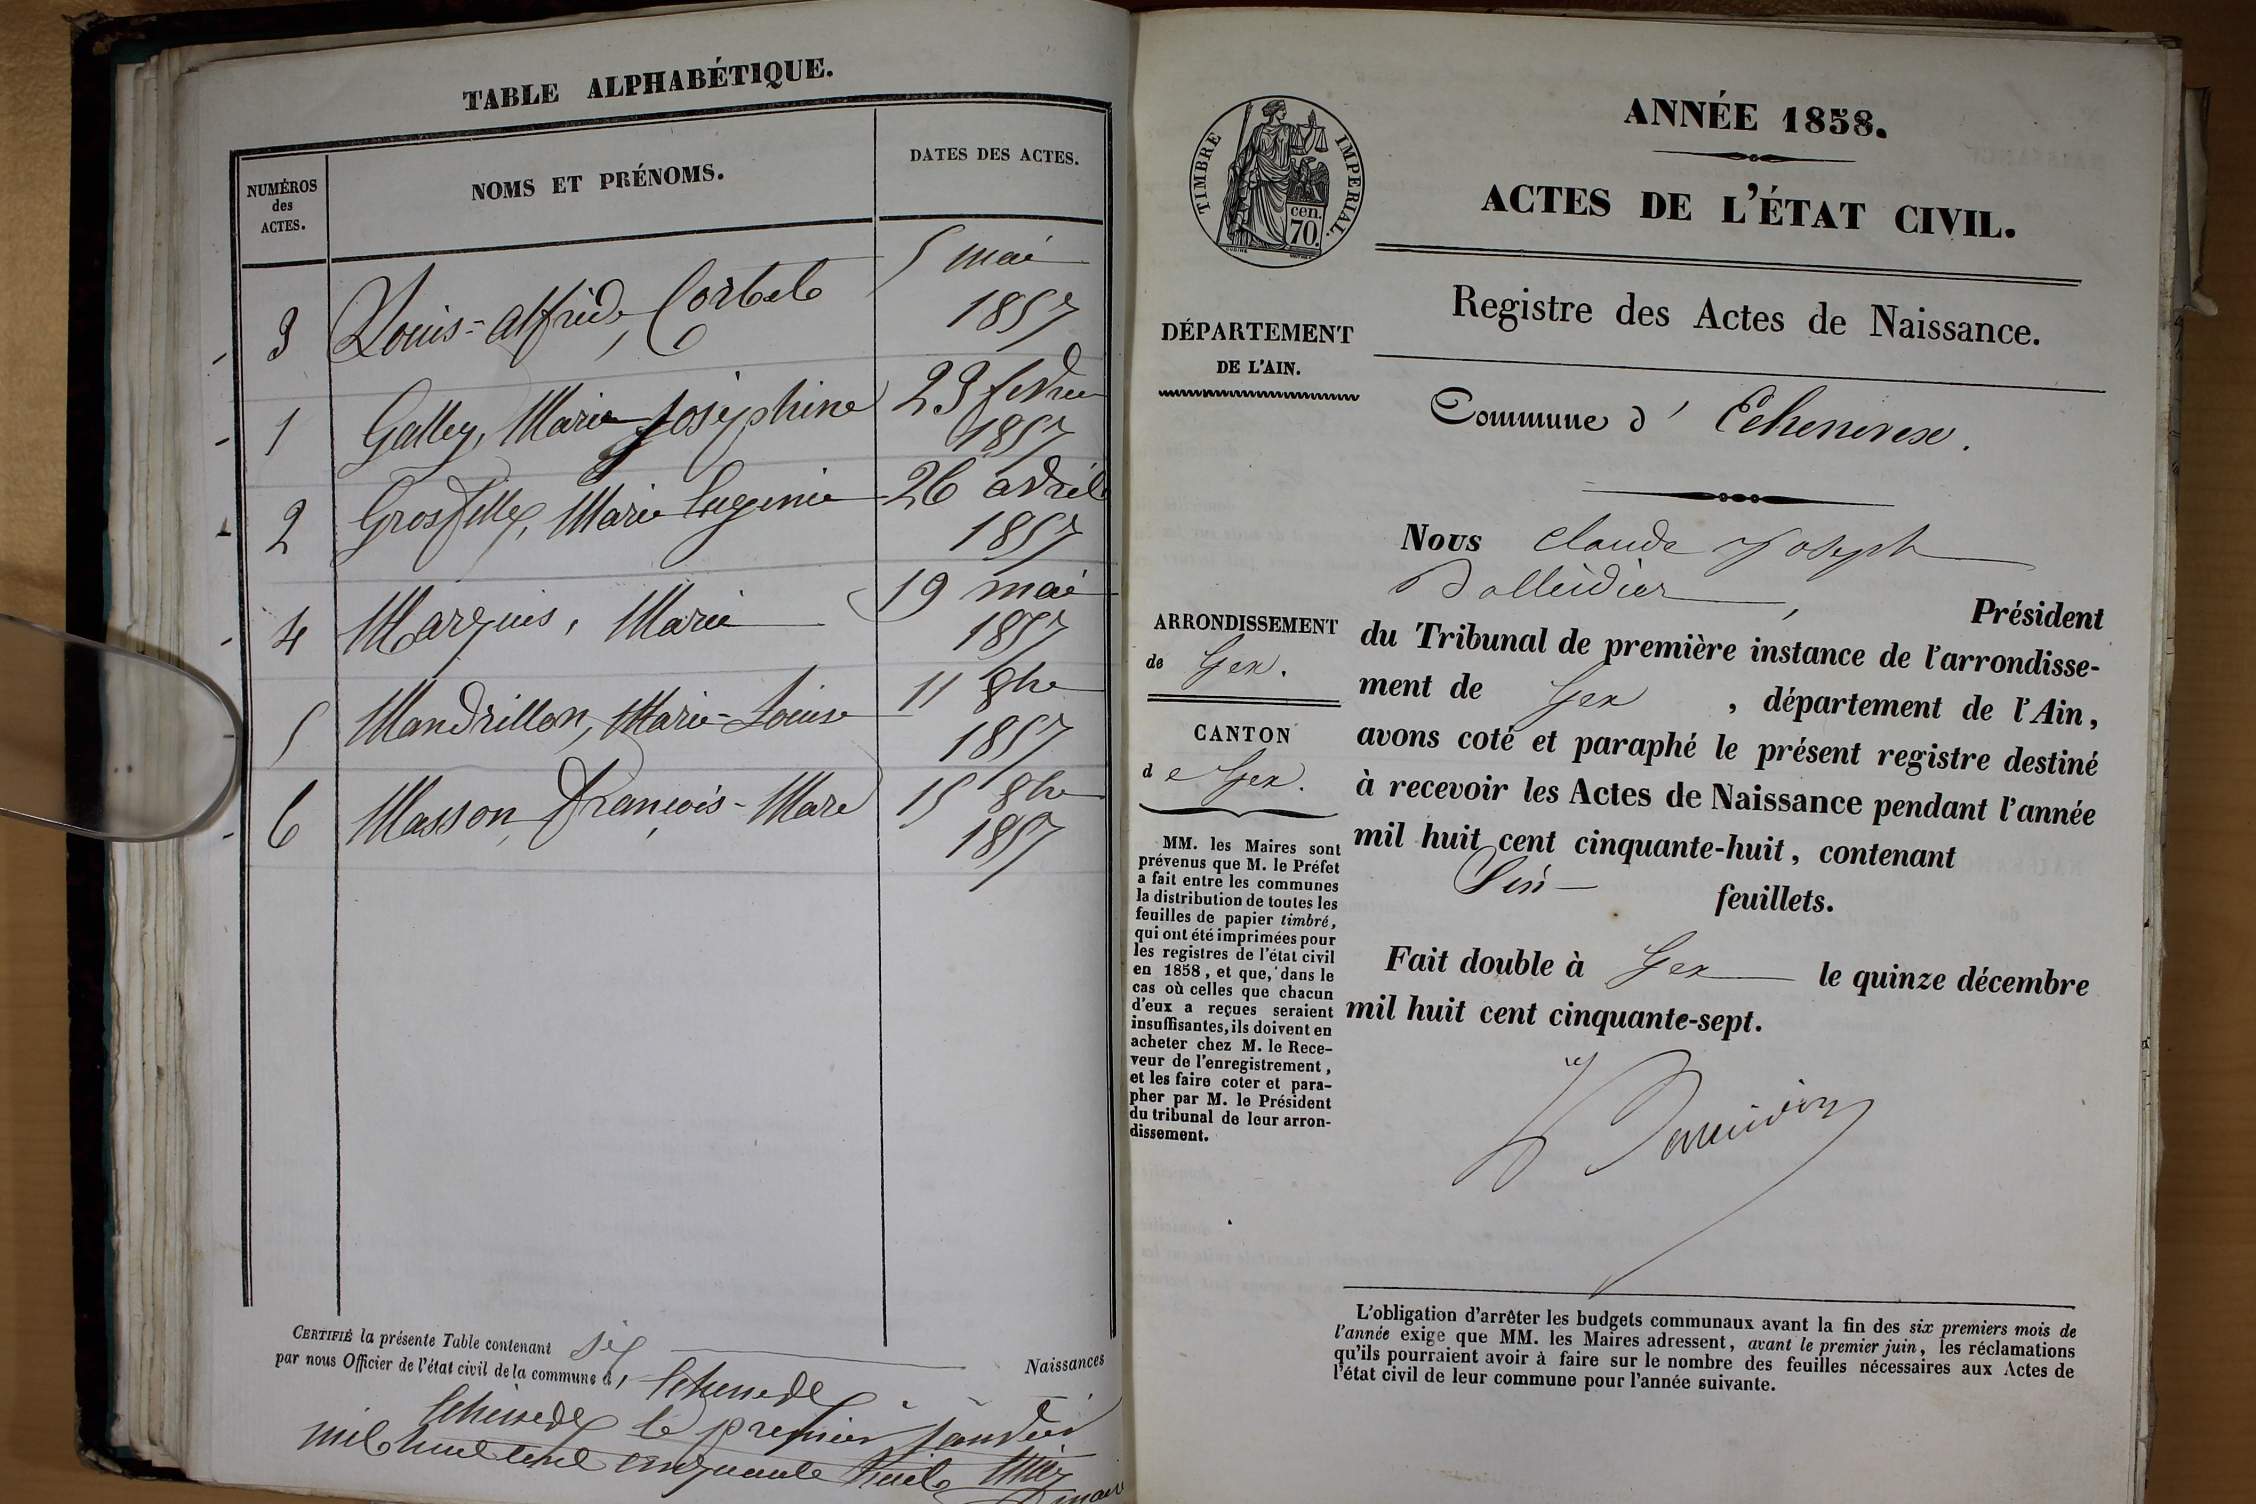 TABLE ALPHABÉTIQUE.
NUMÉROS
des
ACTES.
NOMS ET PRÉNOMS.
DATES DES ACTES.
3 Louis-Alfred, Corbet 5 mai
1857
1 Galley, Marie Joséphine 23 fevrier
1857
2 Grosfilley, Marie Eugenie 26 avril
1857
4 Marquis, Marie 19 mai
1857
5 Mandrillon, Marie-Louise 11 8bre
1857
6 Masson, François-Marc 15 8bre
1857
CERTIFIÉ la présente Table contenant six Naissances
par nous Officier de l'état civil de la commune d'
le premier janvier
mil huit cent cinquante huit
TIMBRE IMPERIAL.
cen.
70.
ANNÉE 1858.
ACTES DE L'ÉTAT CIVIL.
Registre des Actes de Naissance.
DÉPARTEMENT
DE L'AIN.
Commune d' Echenevex.
Nous Claude Joseph
Balleidier, Président
du Tribunal de première instance de l'arrondisse-
ment de Gex, département de l'Ain,
avons coté et paraphé le présent registre destiné
à recevoir les Actes de Naissance pendant l'année
mil huit cent cinquante-huit, contenant
Six feuillets.
Fait double à Gex le quinze décembre
mil huit cent cinquante-sept.
ARRONDISSEMENT
de Gex.
CANTON
de Gex.
MM. les Maires sont
prévenus que M. le Préfet
a fait entre les communes
la distribution de toutes les
feuilles de papier timbré,
qui ont été imprimées pour
les registres de l'état civil
en 1858, et que, dans le
cas où celles que chacun
d'eux a reçues seraient
insuffisantes, ils doivent en
acheter chez M. le Rece-
veur de l'enregistrement,
et les faire coter et para-
pher par M. le Président
du tribunal de leur arron-
dissement.
L'obligation d'arrêter les budgets communaux avant la fin des six premiers mois de
l'année exige que MM. les Maires adressent, avant le premier juin, les réclamations
qu'ils pourraient avoir à faire sur le nombre des feuilles nécessaires aux Actes de
l'état civil de leur commune pour l'année suivante.